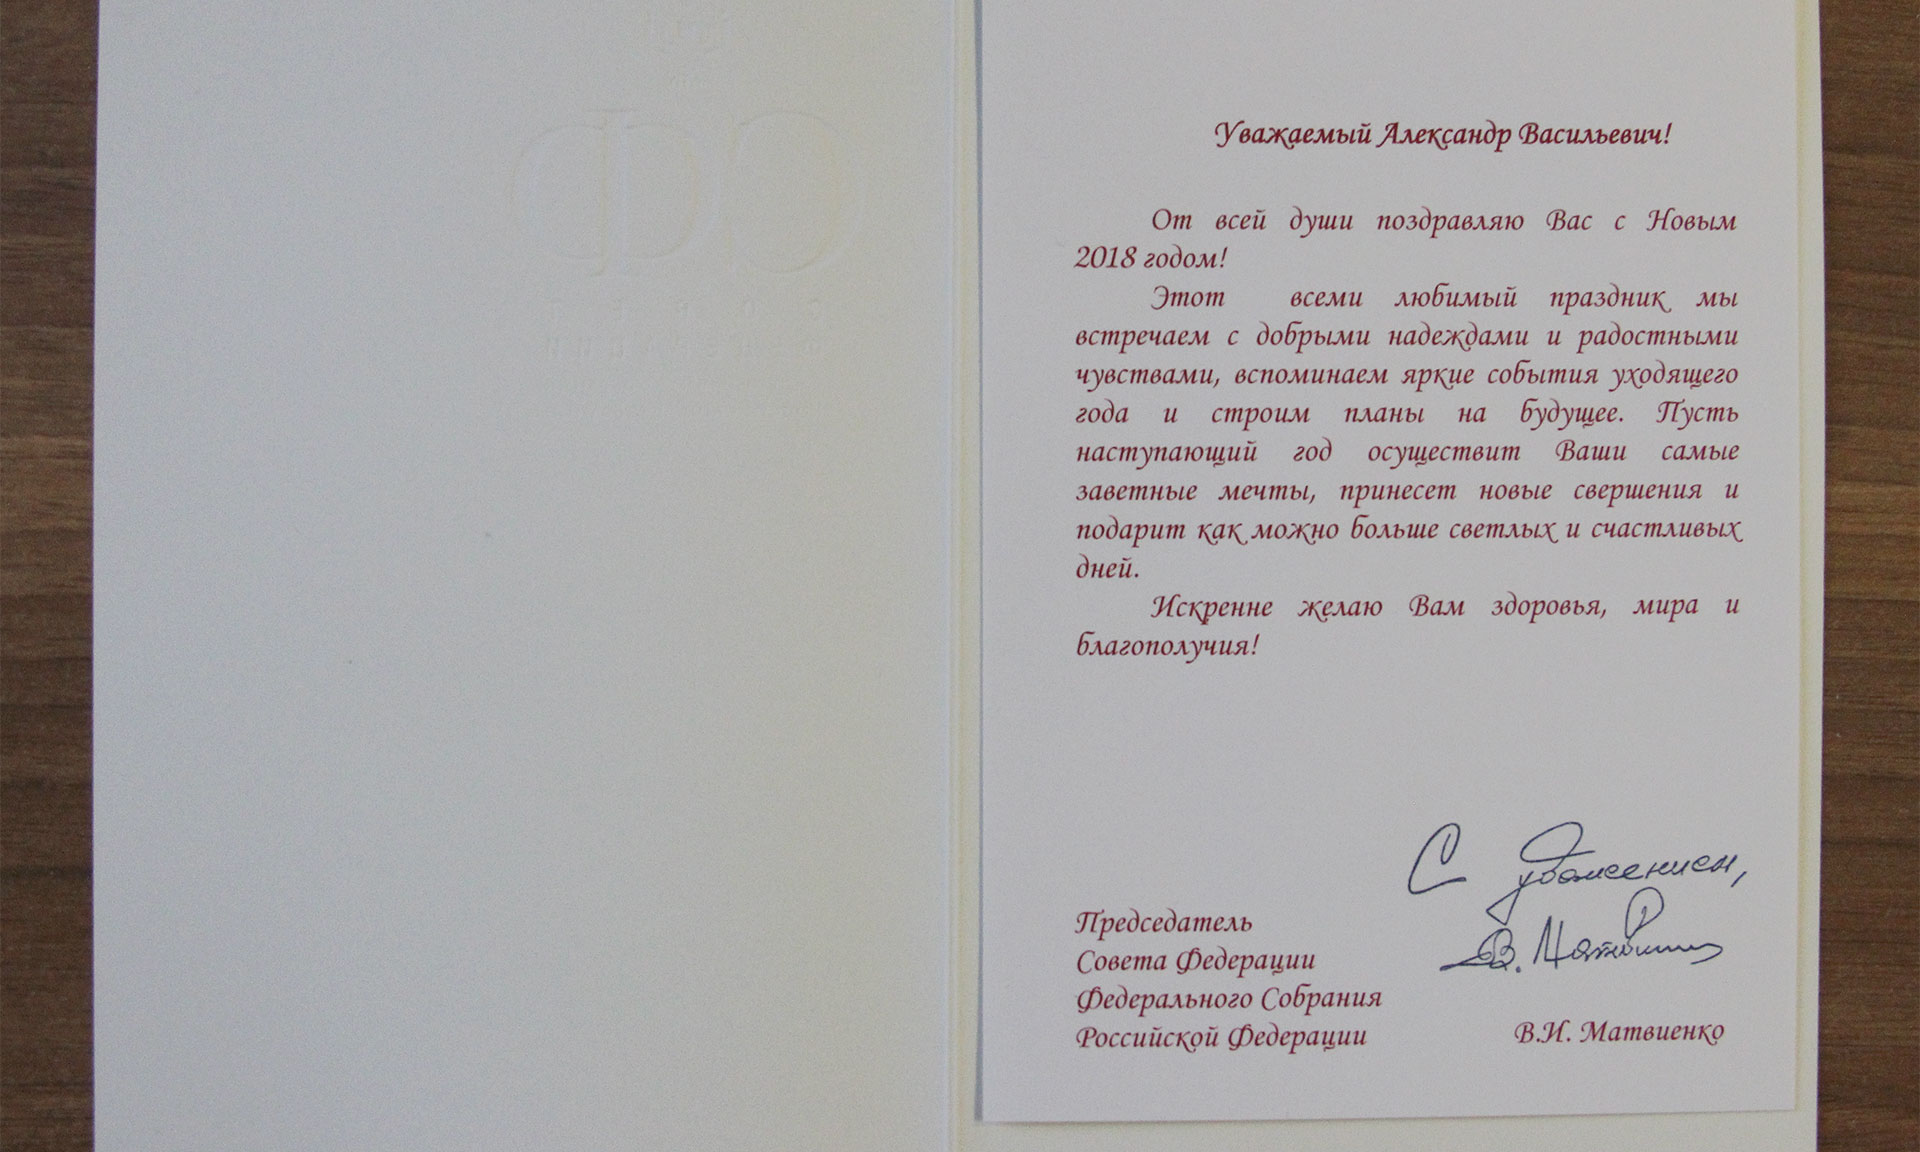 Уважаемый Александр Васильевич!
От всей души поздравляю Вас с Новым
2018 годом!
Этот всеми любимый праздник мы
встречаем с добрыми надеждами и радостными
чувствами, вспоминаем яркие события уходящего
года и строим планы на будущее. Пусть
наступающий год осуществит Ваши самые
заветные мечты, принесет новые свершения и
подарит как можно больше светлых и счастливых
дней.
Искренне желаю Вам здоровья, мира и
благополучия!
С уважением,
В. Матвиенко
Председатель
Совета Федерации
Федерального Собрания
Российской Федерации
В.И. Матвиенко